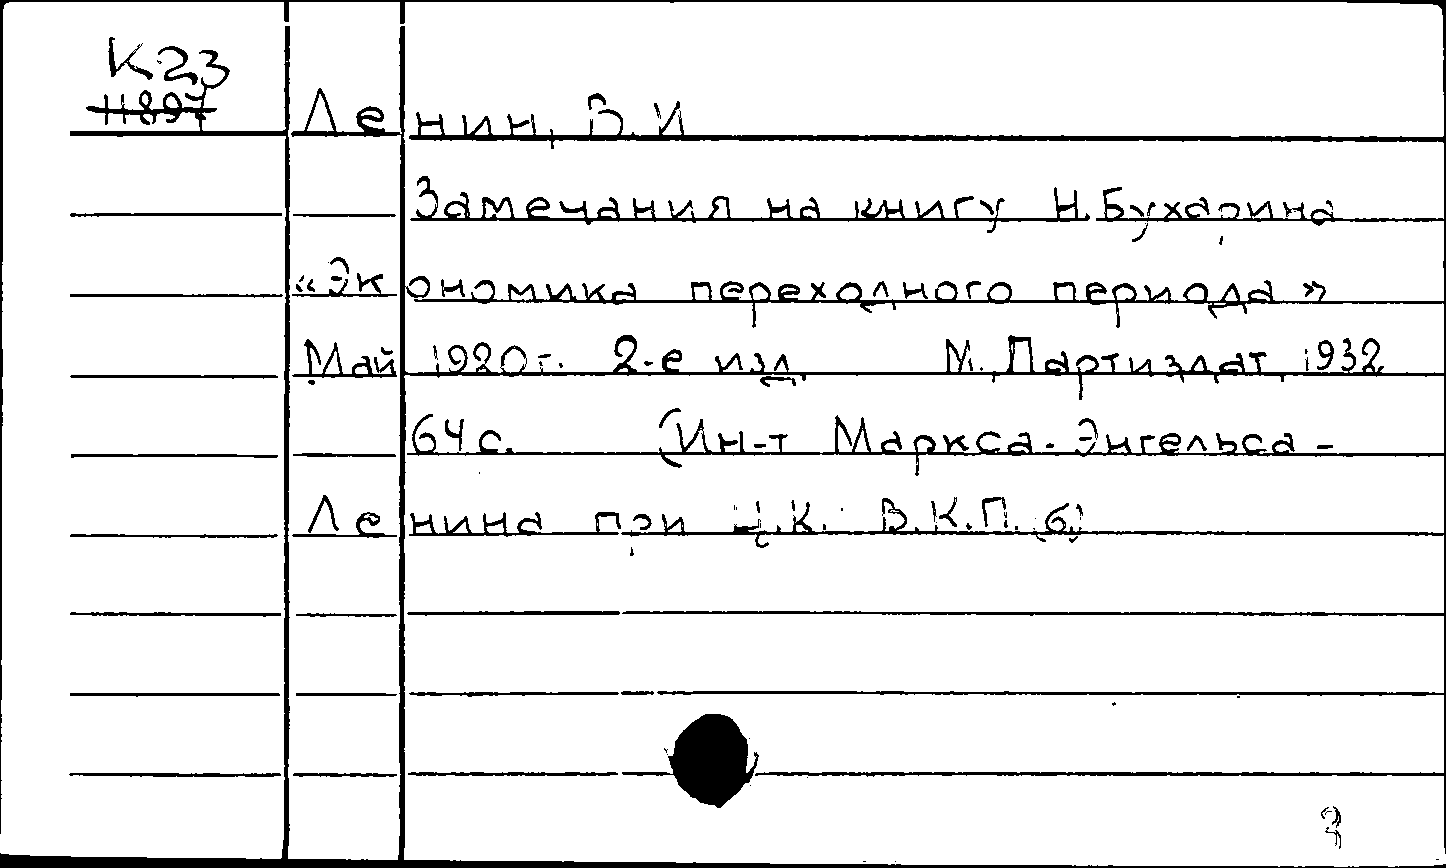 К23
11897
Ленин, В.И
Замечания на книгу Н.Бухарина
«Экономика переходного периода»
Май 1920г. 2-е изд. М., Партиздат, 1932
64с. (Ин-т Маркса-Энгельса-
Ленина при Ц.К. В.К.П.(б)